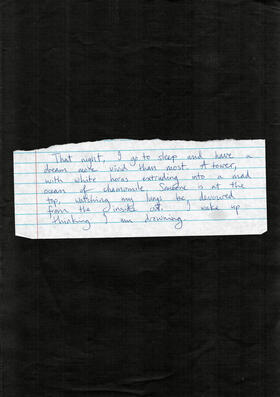 That night, I go to sleep and have a
dream more vivid than most. A tower,
with white horns extruding into a mad
ocean of chamomile. Someone is at the
top, watching my lungs be devoured
from the inside out. I wake up
thinking I am drowning.